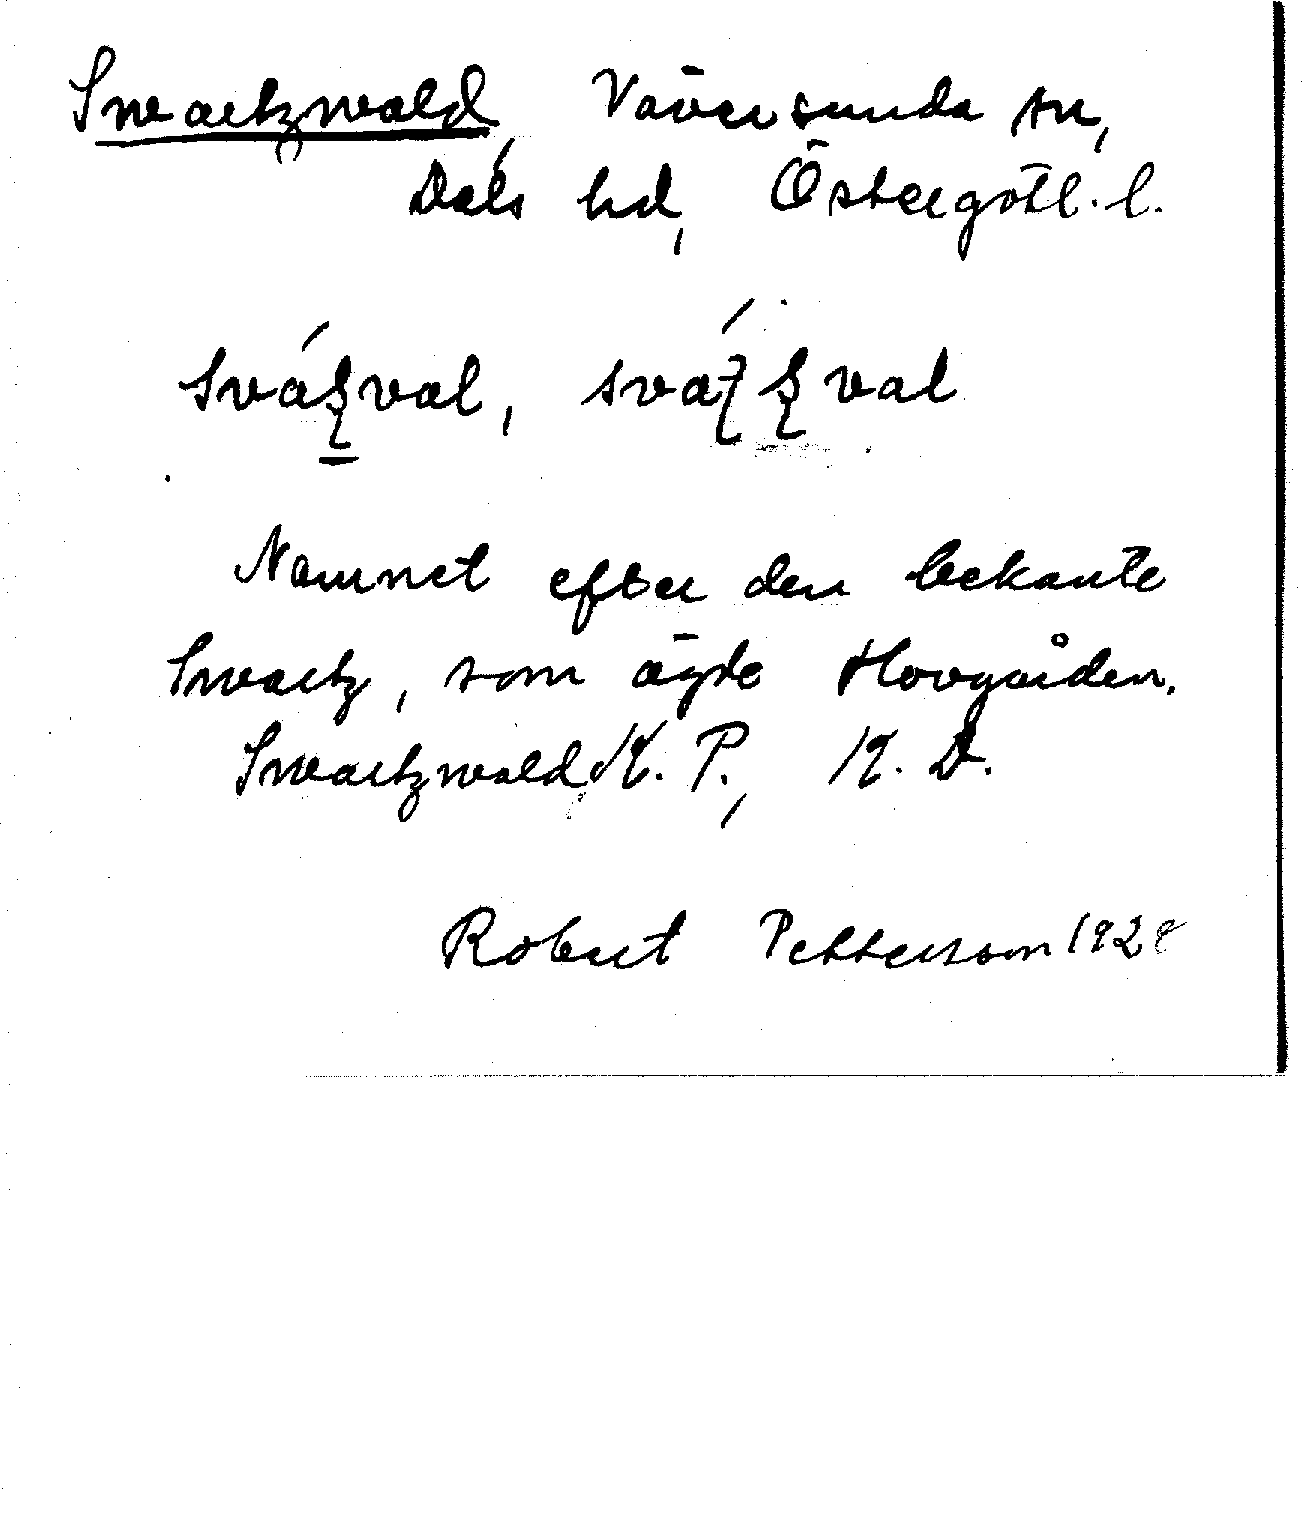 Swartzwald, Väversunda sn,
Dals hd, Östergötl. l.
Namnet efter den bekante
Swartz, som ägde Hovgården.
Swartzwald K. P., K. D.
Robert Pettersson 1928